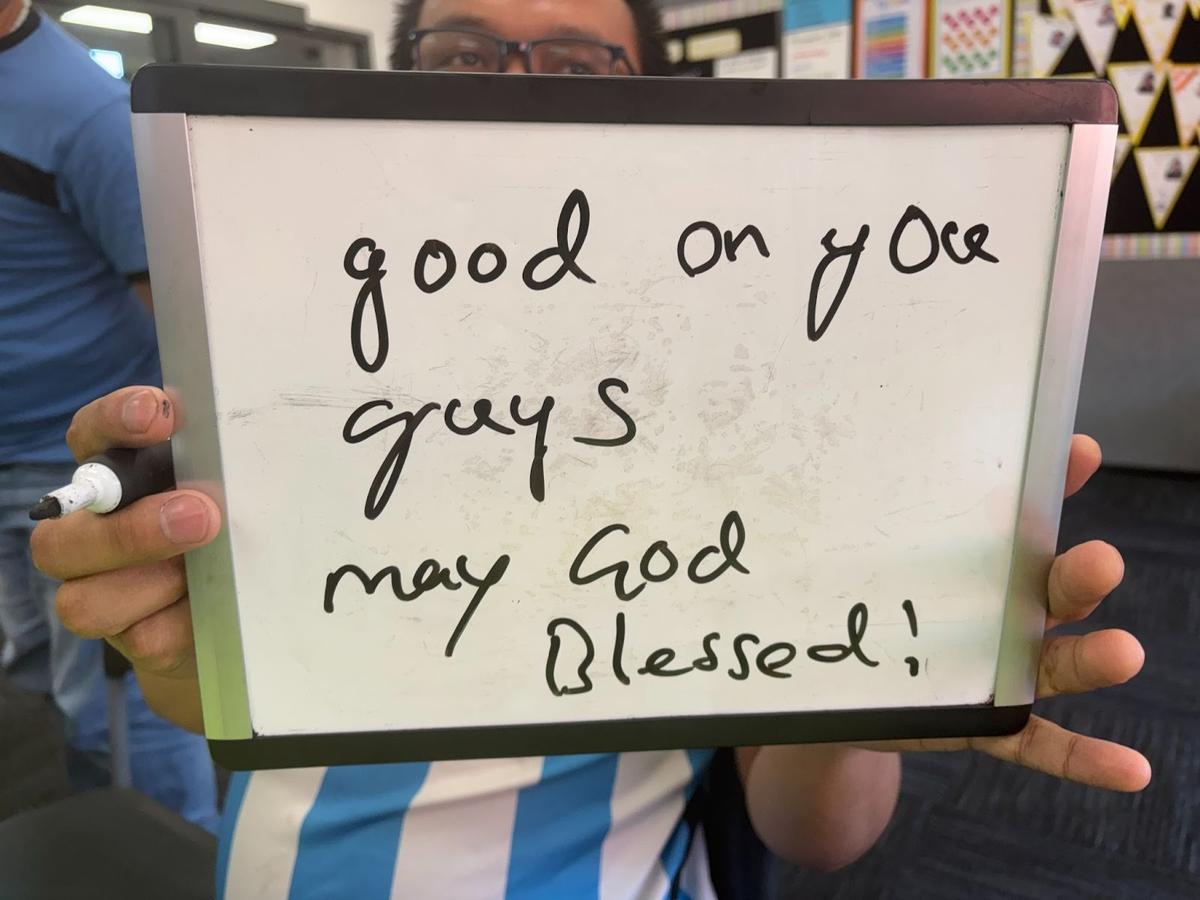 good on you
guys
may God
Blessed!